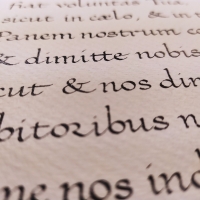 fiat voluntas Tua,
sicut in cælo, & in t
Panem nostrum co
& dimitte nobis
cut & nos dim
bitoribus n
ne nos ind